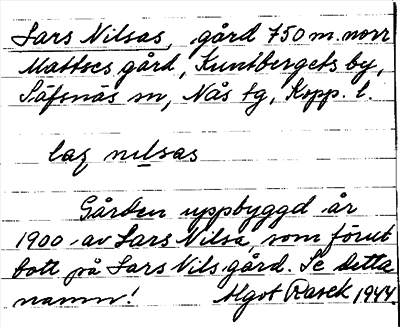 Lars Nilsas, gård 750 m. norr
Mattses gård, Kuntbergets by,
Säfsnäs sn, Nås tg, Kopp. l.
laʂ nɩlsas
Gården uppbyggd år
1900 av Lars Nilsa, som förut
bott på Lars Nils gård. Se detta
namn! Algot Rasck 1944.